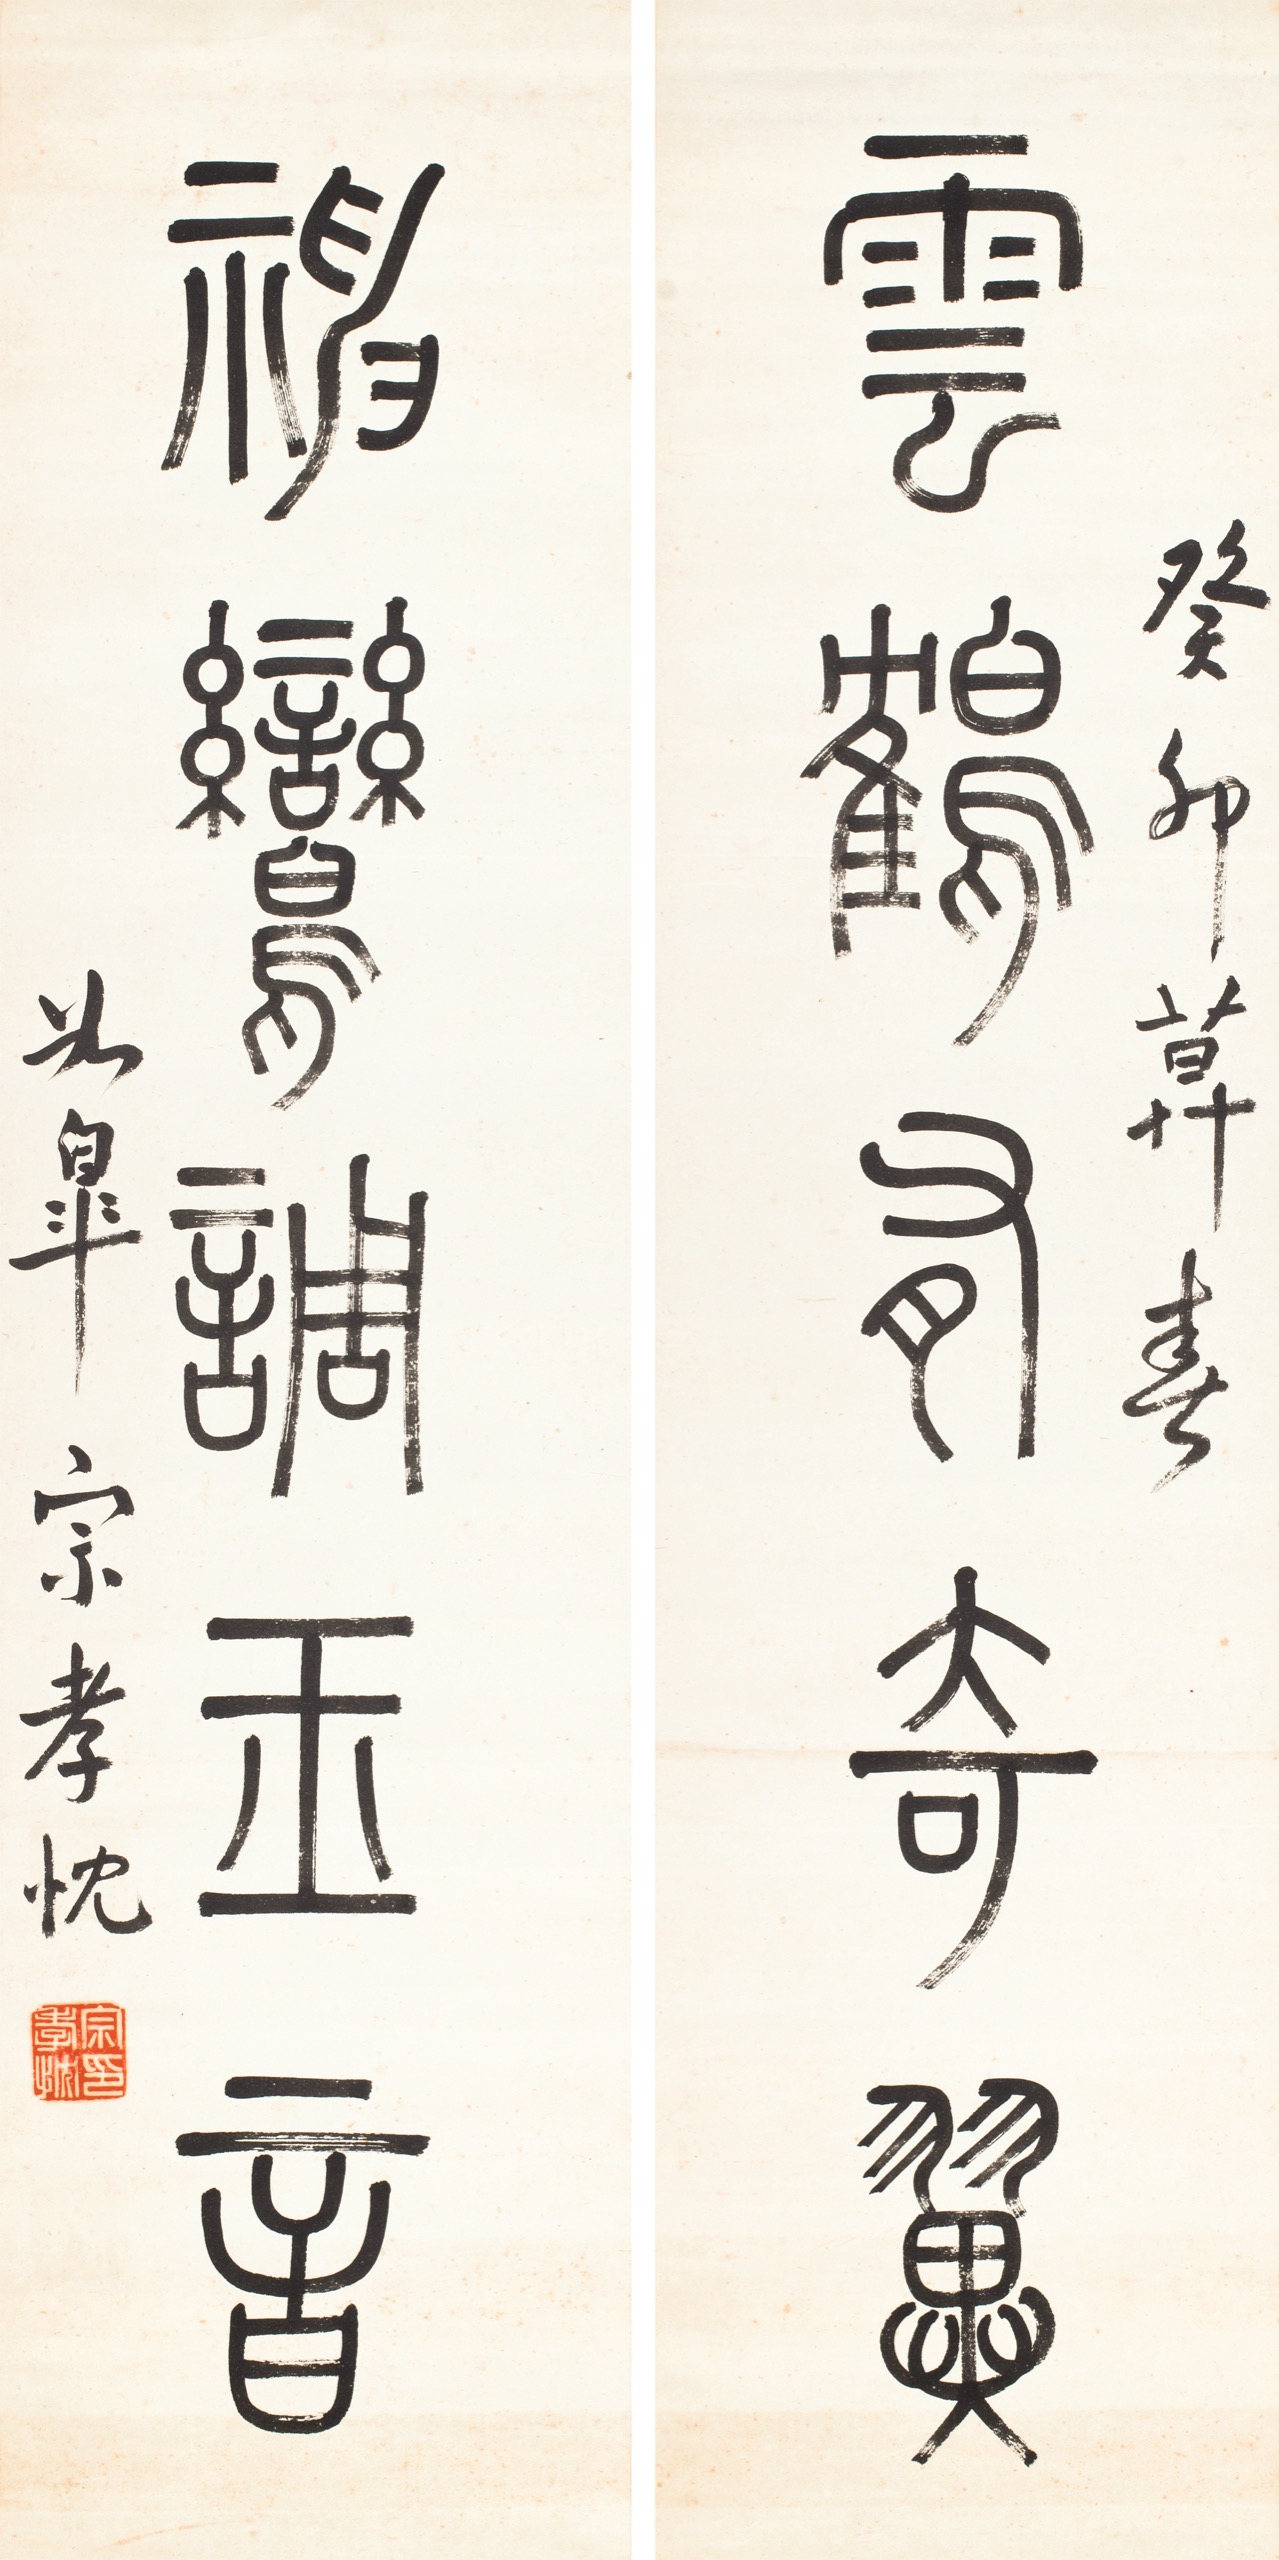 癸卯莫春
雲鶴有奇翼
神鸞調玉音
如皋宗孝忱
宗孝忱印